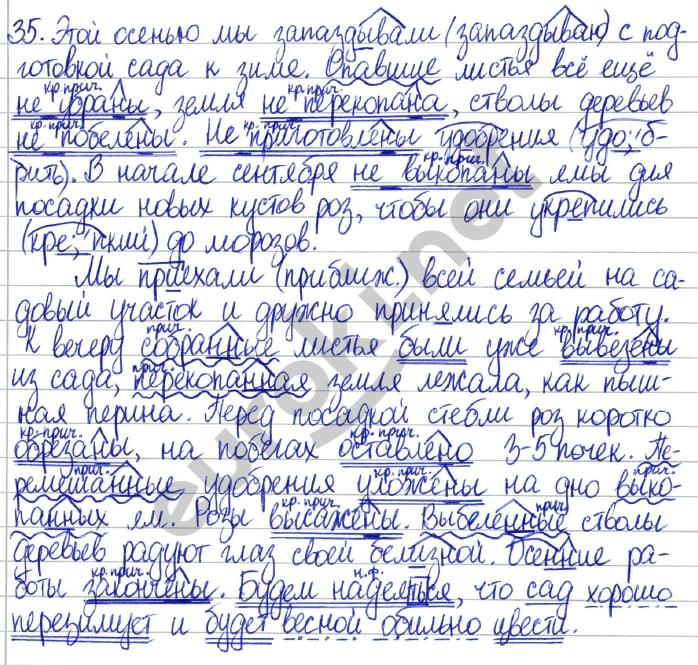 35. Этой осенью мы запаздывали (запаздываю) с под-
готовкой сада к зиме. Опавшие листья всё ещё
кр. прич. кр. прич.
не убраны, земля не перекопана, стволы деревьев
кр. прич. кр. прич.
не побелены. Не приготовлены удобрения (удо́б-
кр. прич.
рить). В начале сентября не выкопаны ямы для
посадки новых кустов роз, чтобы они укрепились
(кре́пкий) до морозов.
Мы приехали (приближ.) всей семьей на са-
довый участок и дружно принялись за работу.
прич. кр. прич.
К вечеру собранные листья были уже вывезены
прич.
из сада, перекопанная земля лежала, как пыш-
ная перина. Перед посадкой стебли роз коротко
кр. прич. кр. прич.
обрезаны, на побегах оставлено 3-5 почек. Пе-
прич. кр. прич. прич.
ремешанные удобрения уложены на дно выко-
кр. прич. прич.
панных ям. Розы высажены. Выбеленные стволы
деревьев радуют глаз своей белизной. Осенние ра-
кр. прич. н.ф.
боты закончены. Будем надеяться, что сад хорошо
перезимует и будет весной обильно цвести.
euroki.net